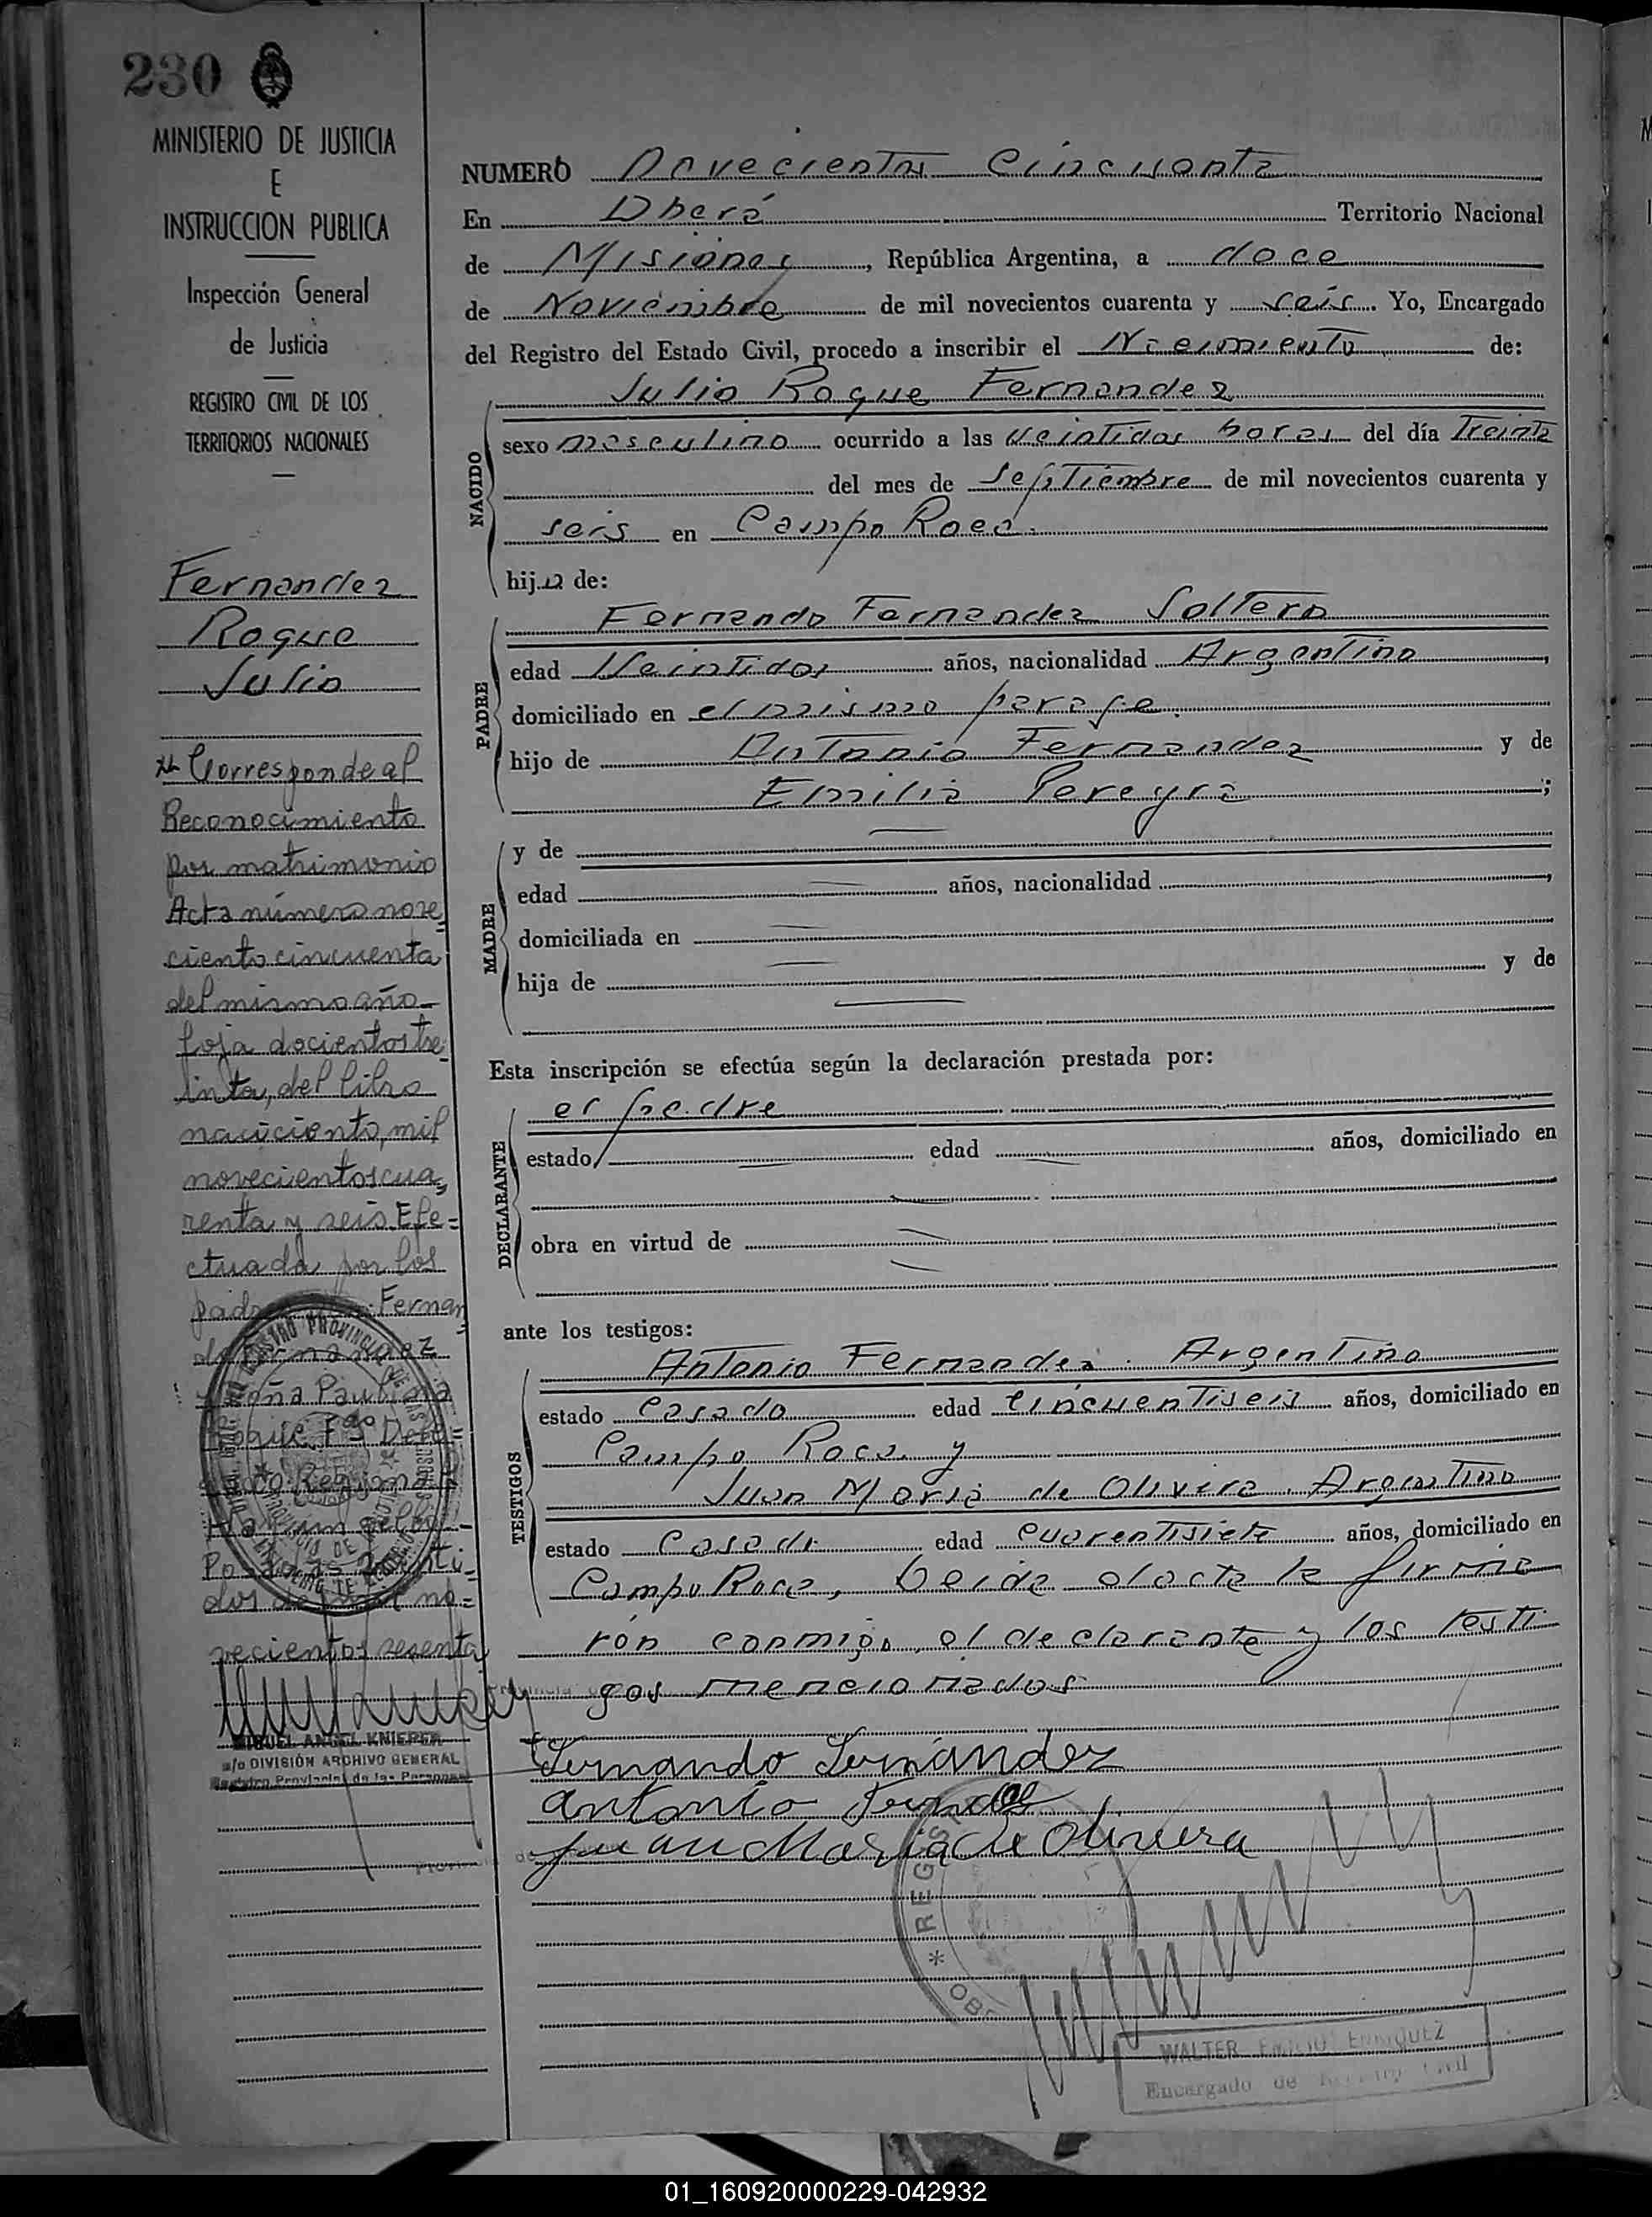 230
MINISTERIO DE JUSTICIA
E
INSTRUCCION PUBLICA
Inspección General
de Justicia
REGISTRO CIVIL DE LOS
TERRITORIOS NACIONALES
Fernandez
Roque
Julio
Corresponde al
Reconocimiento
por matrimonio
Acta número nove
ciento cincuenta
del mismo año
foja docientos tre
inta, del libro
nacciento, mil
novecientos cua
renta y seis Efe=
ctuada por los
Fernan
doña
Roque
dos no=
vecientos sesenta
MIGUEL ANGEL KNIEPER
a/c DIVISIÓN ARCHIVO GENERAL
Registro Provincial de las Personas
NUMERO Novecientos Cincuenta
En Oberá Territorio Nacional
de Misiones, República Argentina, a doce
de Noviembre de mil novecientos cuarenta y seis. Yo, Encargado
del Registro del Estado Civil, procedo a inscribir el Nacimiento de:
Julio Roque Fernandez
NACIDO
sexo masculino ocurrido a las Veintidos horas del día Treinta
del mes de Septiembre de mil novecientos cuarenta y
seis en Campo Roca.
hijo de:
PADRE
Fernando Fernandez Soltero
edad Veintidos años, nacionalidad Argentino
domiciliado en el mismo paraje.
hijo de Antonio Fernandez y de
Emilia Pereyra;
MADRE
y de
edad años, nacionalidad
domiciliada en
hija de y de
Esta inscripción se efectúa según la declaración prestada por:
DECLARANTE
el padre
estado edad años, domiciliado en
obra en virtud de
ante los testigos:
TESTIGOS
Antonio Fernandez. Argentino
estado Casado edad Cincuentiseis años, domiciliado en
Campo Roca y
Juan Maria de Olivera. Argentino
estado Casado edad cuarentisiete años, domiciliado en
Campo Roca, Leida el acta la firma
ron conmigo, el declarante y los testi
gos mencionados
Fernando Fernández
Antonio
Juan Maria de Olivera
REGIS
* OBE
WALTER EMILIO ENRIQUEZ
Encargado de Registro Civil
01_160920000229-042932